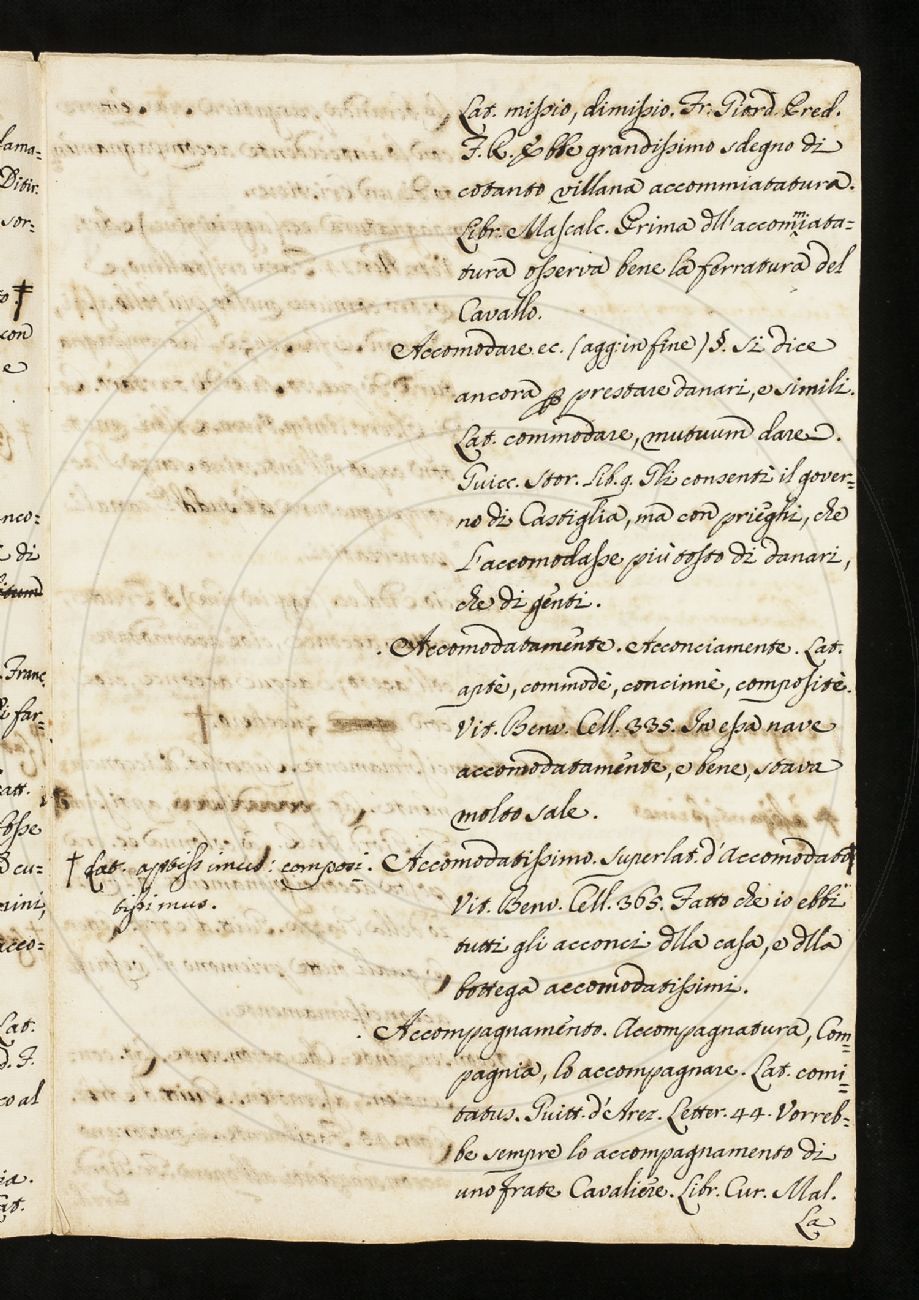 Lat. missio, dimissio. Fr. Giord. Pred.
F. R. Ebbe grandissimo sdegno di
cotanto villana accommiatatura.
Libr. Mascalc. Prima dll'accommiata=
tura osserva bene la ferratura del
Cavallo.
Accomodare ec. (agg: in fine) §. Si dice
ancora p prestare danari, e simili.
Lat. commodare, mutuum dare.
Guicc. Stor. lib. 9. Gli consentì il gover=
no di Castiglia, ma con prieghi, che
L'accomodasse più tosto di danari,
che di genti.
Accomodatamente. Acconciamente. Lat.
aptè, commodè, concinnè, compositè.
Vit. Benv. Cell. 335. In essa nave
accomodatamente, e bene, stava
molto sale.
† Lat. aptissimus: composi-
tissimus.
Accomodatissimo. Superlat. d'Accomodato †
Vit. Benv. Cell. 365. Fatto che io ebbi
tutti gli acconci dlla casa, e dlla
bottega accomodatissimi.
Accompagnamento. Accompagnatura, Com=
pagnia, lo accompagnare. Lat. comi=
tatus. Guitt. d'Arez. Letter. 44. Vorreb=
be sempre lo accompagnamento di
uno frate Cavaliere. Libr. Cur. Mal.
La